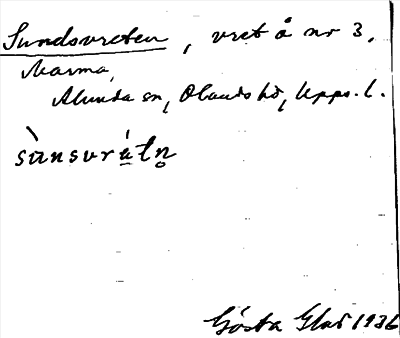 Sundsvreten, vret å nr 3,
Marma,
Alunda sn, Olands hd, Upps. l.
sùnsvrétn̥
Gösta 1936